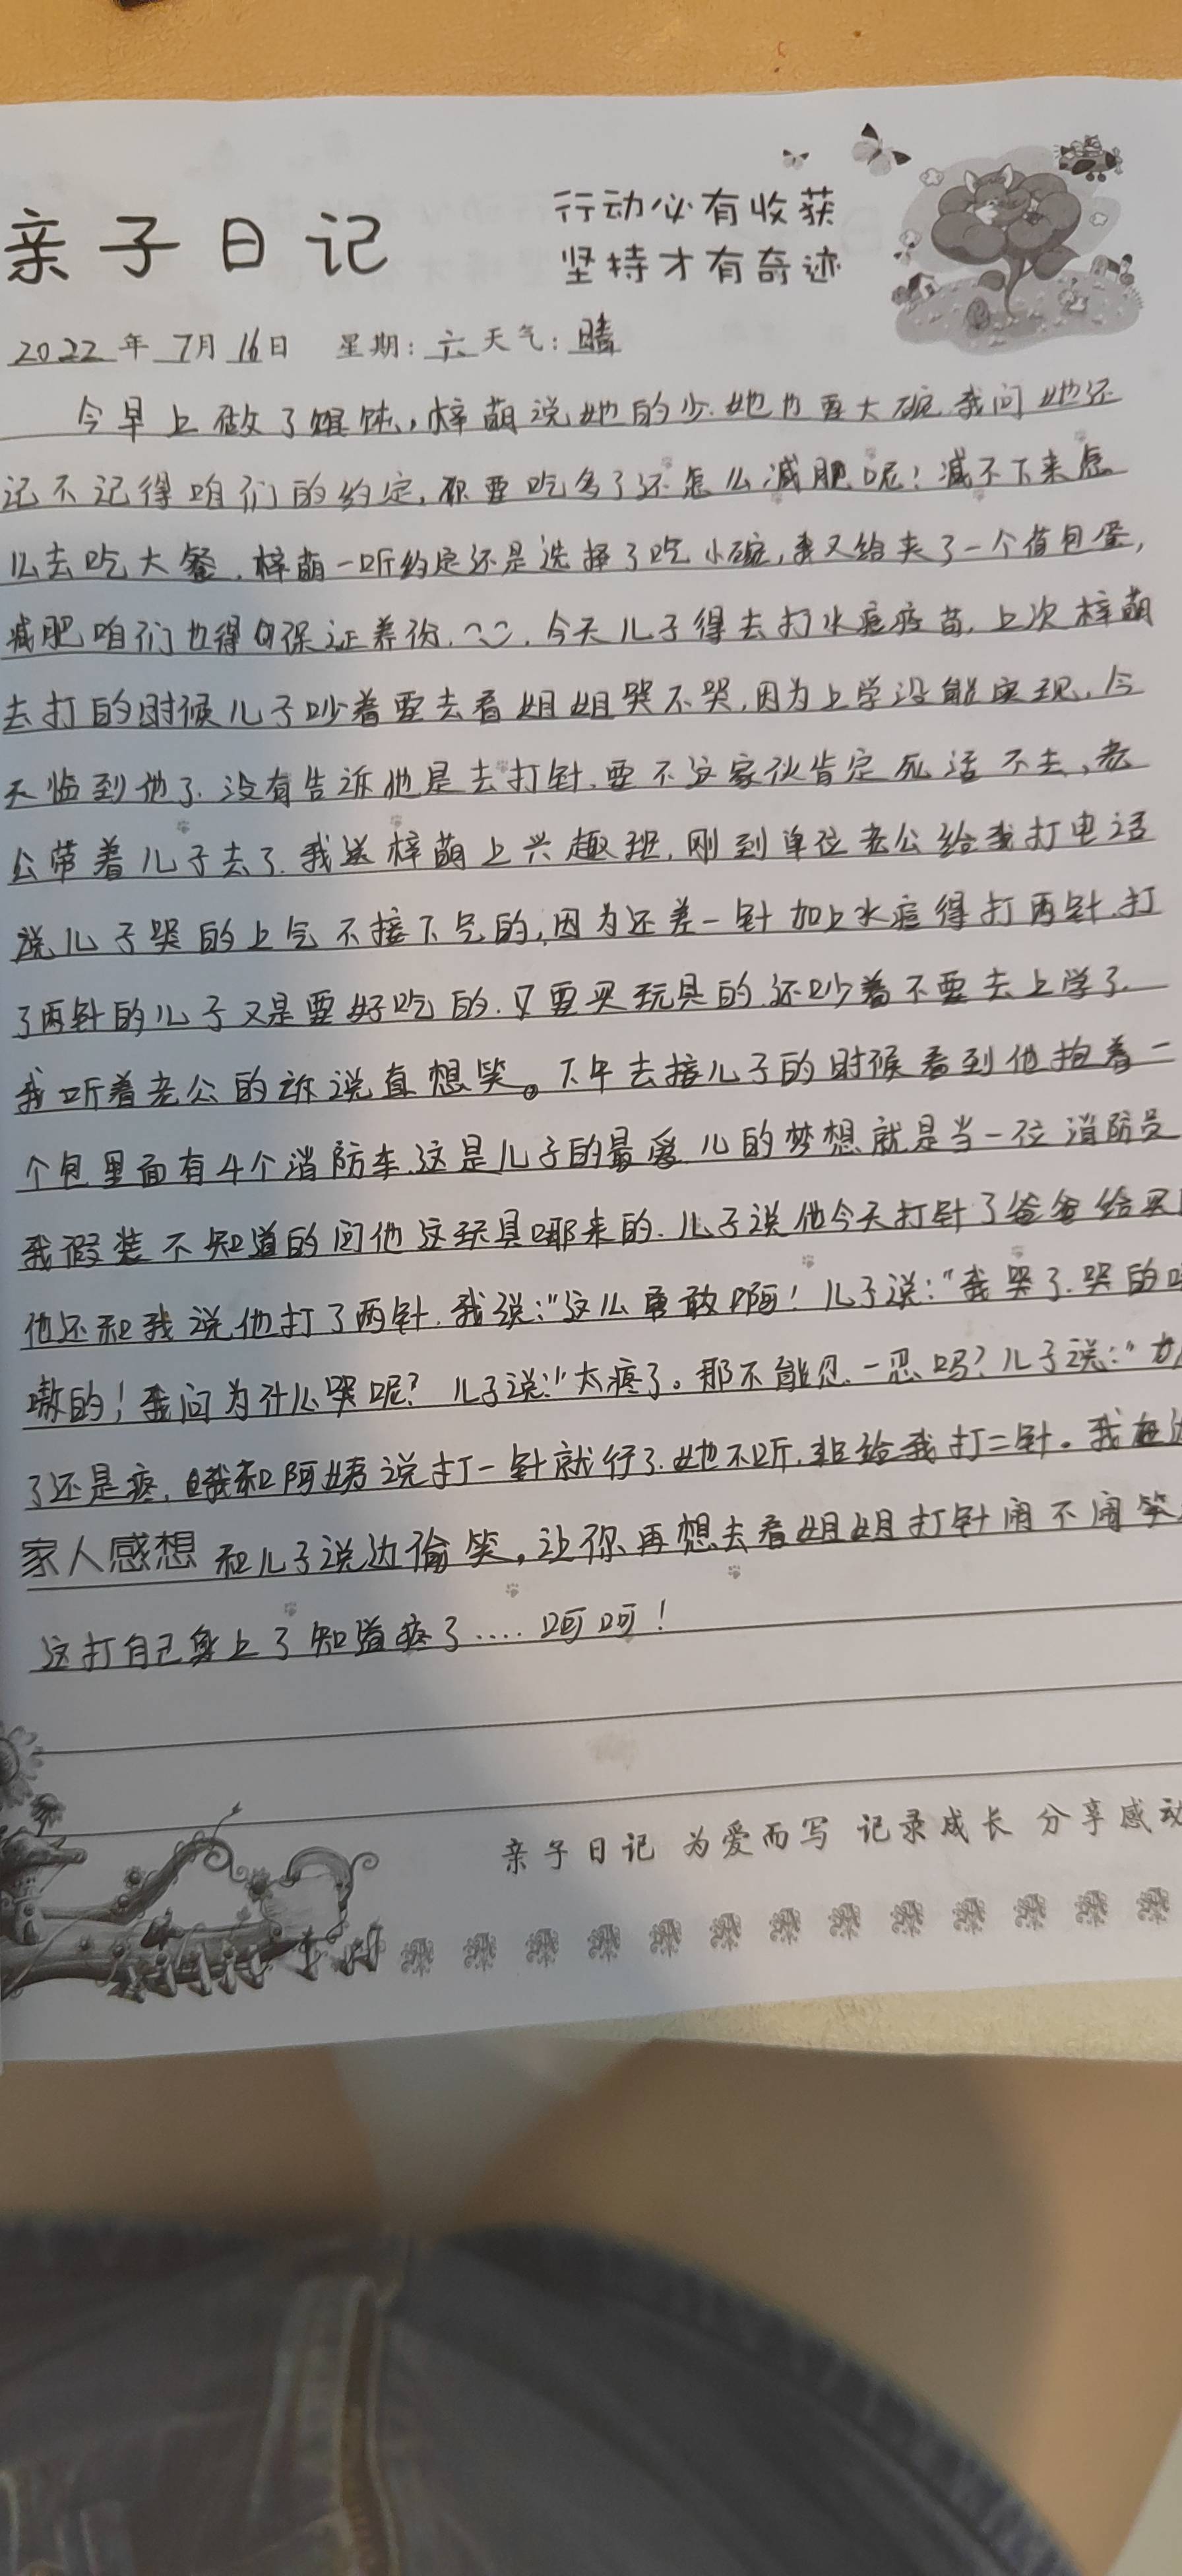 亲子日记
行动必有收获
坚持才有奇迹
2022年 7月 16日 星期:六 天气:晴
今早上做了馄饨,梓萌说她的少.她也要大碗.我问她还
记不记得咱们的约定,要吃多了还怎么减肥呢!减不下来怎
么去吃大餐.梓萌一听约定还是选择了吃小碗,我又给夹了一个荷包蛋,
减肥咱们也得保证养份.今天儿子得去打水痘疫苗.上次梓萌
去打的时候儿子吵着要去看姐姐哭不哭,因为上学没能实现.今
天临到他了.没有告诉他是去打针.要不这家伙肯定死活不去,老
公带着儿子去了.我送梓萌上兴趣班,刚到单位老公给我打电话
说儿子哭的上气不接下气的,因为还差一针加上水痘得打两针.打
了两针的儿子又是要好吃的.又要买玩具的.还吵着不要去上学了.
我听着老公的诉说直想笑。下午去接儿子的时候看到他抱着一
个包里面有4个消防车.这是儿子的最爱.儿的梦想就是当一位消防员
我假装不知道的问他这玩具哪来的.儿子说他今天打针了爸爸给买
他还和我说他打了两针.我说:"这么勇敢啊!儿子说:"我哭了.哭的
嗷的!我问为什么哭呢?儿子说:"太疼了。那不能忍一忍吗?儿子说:"
了还是疼.我和阿姨说打一针就行了.她不听.非给我打二针。我在边
家人感想 和儿子说边偷笑,让你再想去看姐姐打针闹不闹笑
这打自己身上了知道疼了....呵呵!
亲子日记 为爱而写 记录成长 分享感动